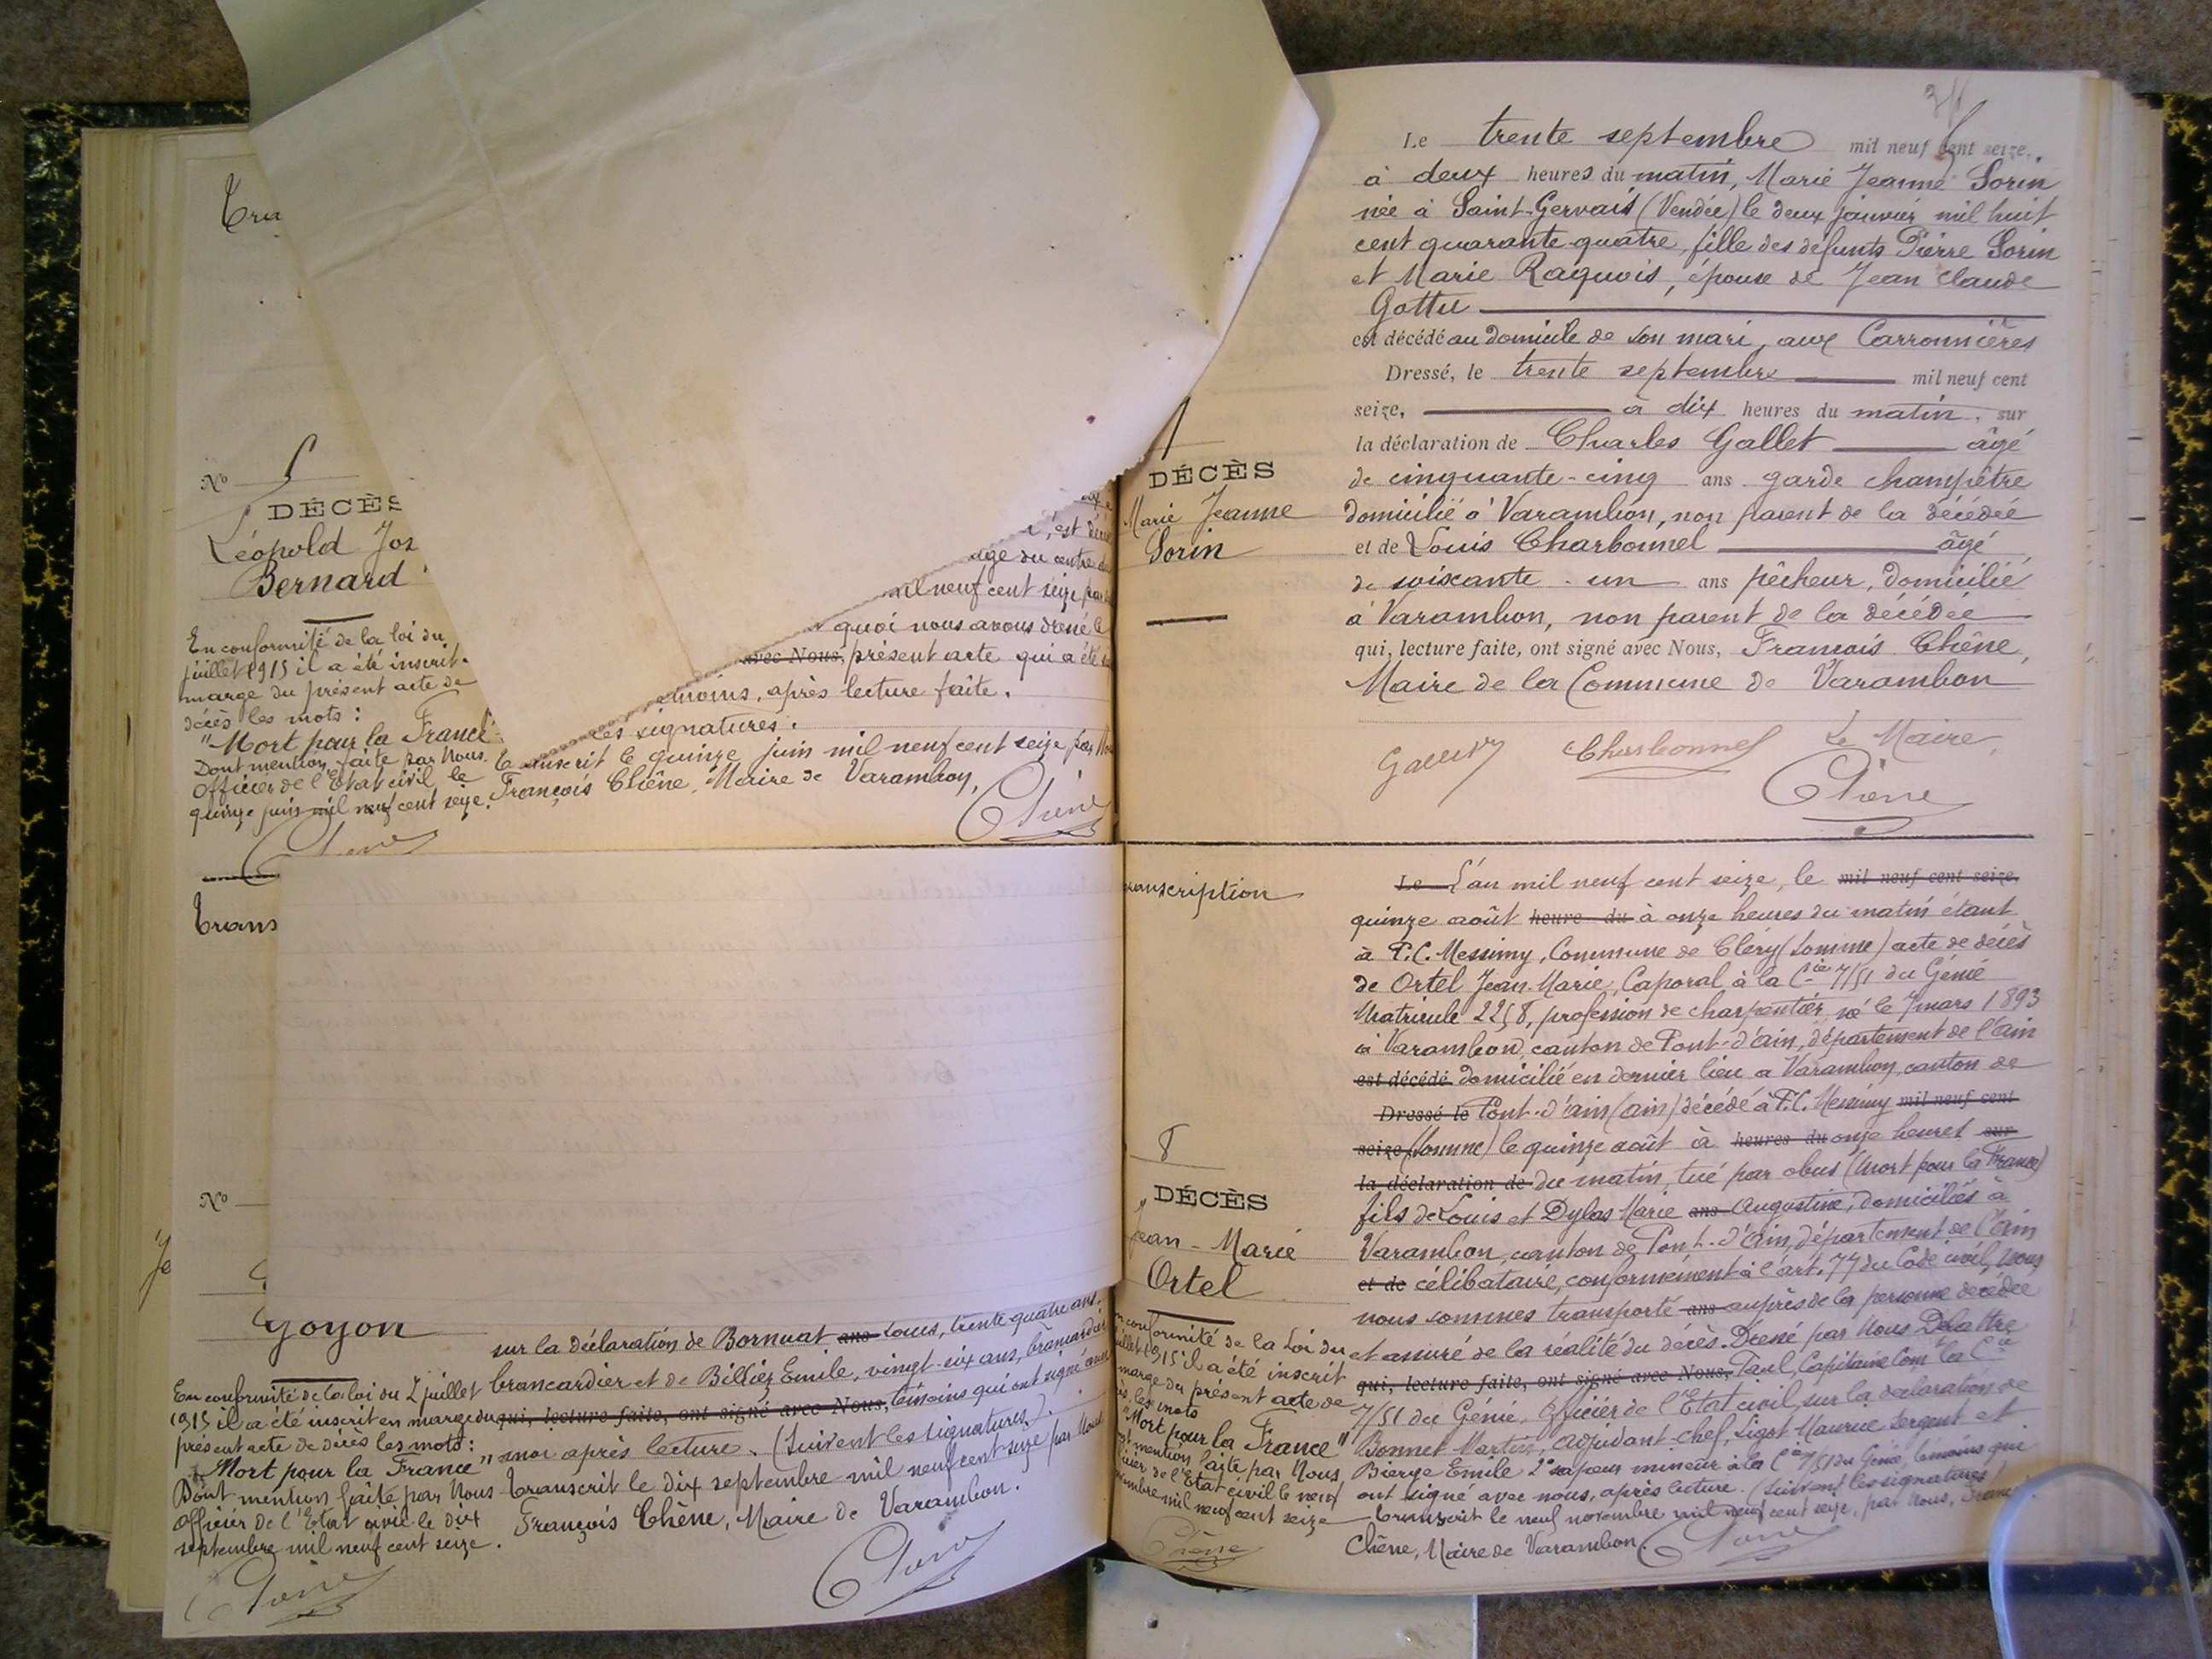 Tra
No 5
DÉCÈS
Léopold Jos
Bernard
En conformité de la loi du
juillet 1915 il a été inscrit
marge du présent acte de
décès les mots :
"Mort pour la France"
Dont mention faite par Nous
Officier de l'Etat civil le
quinze juin mil neuf cent seize.
age du centre
mil neuf cent seize
quoi nous avons dressé le
avec Nous, présent acte qui a été
témoins, après lecture faite.
les signatures.
Transcrit le quinze juin mil neuf cent seize par
François Chêne, Maire de Varambon,
Chêne
Trans
No
Goyon
En conformité de la loi du 2 juillet
1915 il a été inscrit en marge du
présent acte de décès les mots :
"Mort pour la France"
Dont mention faite par Nous
Officier de l'Etat civil le dix
septembre mil neuf cent seize.
Chêne
sur la déclaration de Bornuat ans Louis, trente quatre ans,
brancardier et de Billiez Emile, vingt-six ans, brancardier
qui, lecture faite, ont signé avec Nous, témoins qui ont signé avec
moi après lecture. (Suivent les signatures).
Transcrit le dix septembre mil neuf cent seize par Nous
François Chêne, Maire de Varambon.
Chêne
7
DÉCÈS
Marie Jeanne
Sorin
Le trente septembre mil neuf cent seize,
à deux heures du matin, Marie Jeanne Sorin
née à Saint-Gervais (Vendée) le deux janvier mil huit
cent quarante-quatre, fille des défunts Pierre Sorin
et Marie Raquois, épouse de Jean Claude
Gottu
est décédé au domicile de son mari, aux Carronnières
Dressé, le trente septembre mil neuf cent
seize, à dix heures du matin, sur
la déclaration de Charles Gallet âgé
de cinquante-cinq ans garde champêtre
domicilié à Varambon, non parent de la décédée
et de Louis Charbonnel âgé
de soixante-un ans pêcheur, domicilié
à Varambon, non parent de la décédée
qui, lecture faite, ont signé avec Nous, François Chêne,
Maire de la Commune de Varambon
Gallet Charbonnel Le Maire,
Chêne
ranscription
8
DÉCÈS
Jean-Marie
Ortel
conformité de la Loi du
juillet 1915 il a été inscrit
marge du présent acte de
les mots
"Mort pour la France"
mention faite par Nous,
cier de l'Etat civil le neuf
vembre mil neuf cent seize
Chêne
Le L'an mil neuf cent seize, le mil neuf cent seize,
quinze août heure du à onze heures du matin étant
à P.C. Messimy, Commune de Cléry (Somme) acte de décès
de Ortel Jean-Marie, Caporal à la Cie 7/51 du Génie
Matricule 2258, profession de charpentier, né le 7 mars 1893
à Varambon, canton de Pont-d'Ain, département de l'Ain
est décédé domicilié en dernier lieu à Varambon, canton de
Dressé le Pont-d'Ain (Ain) décédé à P.C. Messimy mil neuf cent
seize (Somme) le quinze août à heures du onze heures sur
la déclaration de du matin, tué par obus (Mort pour la France)
fils de Louis et Dylas Marie ans Augustine, domiciliés à
Varambon, canton de Pont-d'Ain, département de l'Ain
et de célibataire, conformément à l'art. 77 du Code civil, nous
nous sommes transporté ans auprès de la personne décédée
et assuré de la réalité du décès. Dressé par Nous Delattre
qui, lecture faite, ont signé avec Nous, Paul, Capitaine Com la Cie
7/51 du Génie, Officier de l'Etat civil, sur la déclaration de
Bonnet Martin, adjudant-chef, Ligot Maurice sergent et
Bierge Emile 2e sapeur mineur à la Cie 7/51 du Génie, témoins qui
ont signé avec nous, après lecture. (Suivent les signatures)
Transcrit le neuf novembre mil neuf cent seize, par Nous, Franç
Chêne, Maire de Varambon. Chêne